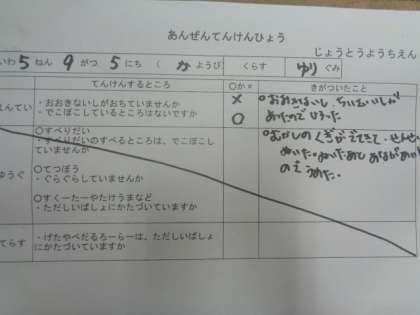 あんぜんてんけんひょう
じょうとうようちえん
いわ5ねん 9がつ 5にち ( か ようび くらす ゆり ぐみ
てんけんするところ ○か× きがついたこと
えんてい ・おおきないしがおちていませんか × ○おおきないし、ちいさいいしが
・でこぼこしているところはないですか ○ あったのでひろった
○すべりだい ○むかしのくぎがでてきて、せんせ
・すべりだいのすべるところは、でこぼこし
ていませんか
ゆうぐ ○てつぼう
・ぐらぐらしていませんか
うめた。
○すくーたーやたけうまなど
・ただしいばしょにかたづいていますか
てらす ・げたやぺだるろーらーは、ただしいばしょ
にかたづいていますか